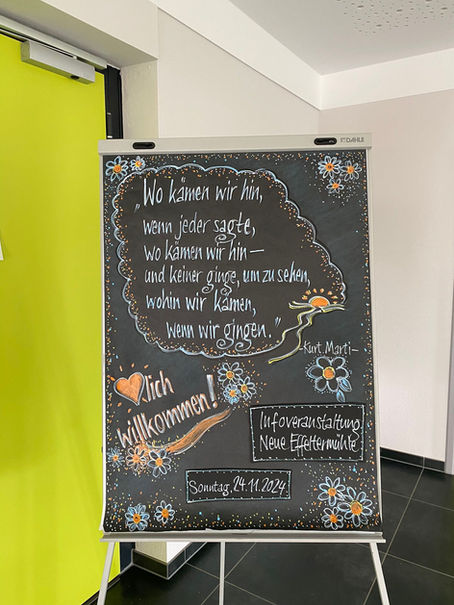 DAHLE
„Wo kämen wir hin,
wenn jeder sagte,
wo kämen wir hin –
und keiner ginge, um zu sehen,
wohin wir kämen,
wenn wir gingen."
-Kurt Marti-
lich
willkommen!
Infoveranstaltung
Neue Effeltermühle
Sonntag, 24.11.2024